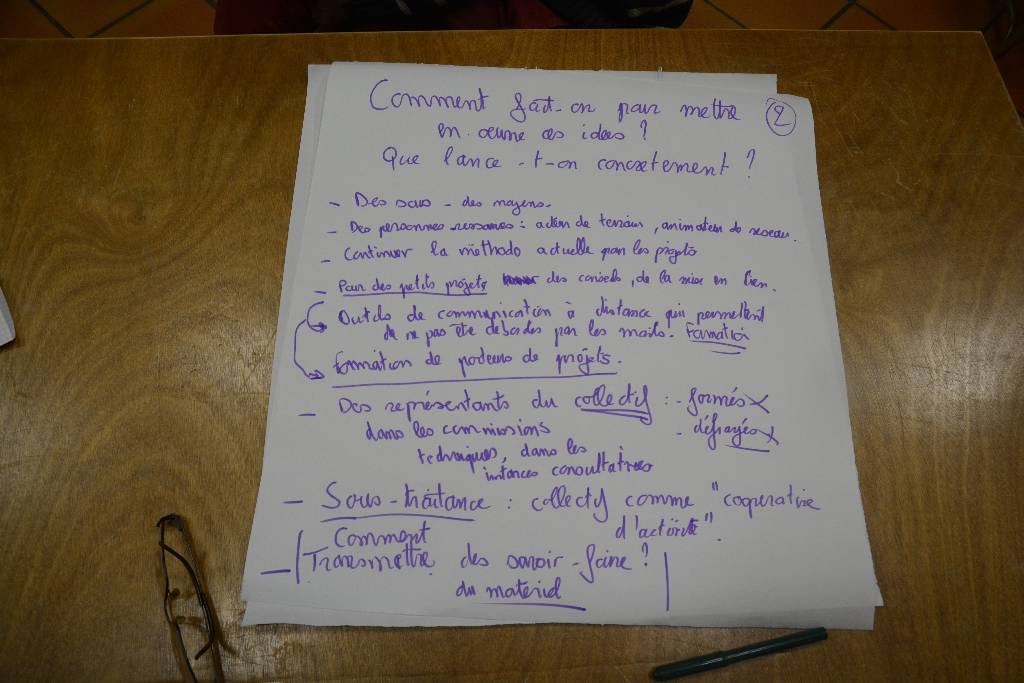 Comment fait-on pour mettre
2
en œuvre ces idées ?
Que lance-t-on concrètement ?
- Des sous - des moyens.
- Des personnes ressources : action de terrain, animation de réseau.
- Continuer la méthodo actuelle pour les projets
- Pour des petits projets des conseils, de la mise en lien.
Outils de communication à distance qui permettent
de ne pas être débordés par les mails. Formation
Formation de porteurs de projets.
- Des représentants du collectif : - formés
dans les commissions - défrayés
techniques, dans les
instances consultatives
- Sous-traitance : collectif comme "coopérative
d'activité".
Comment
- Transmettre des savoir-faire ?
du matériel